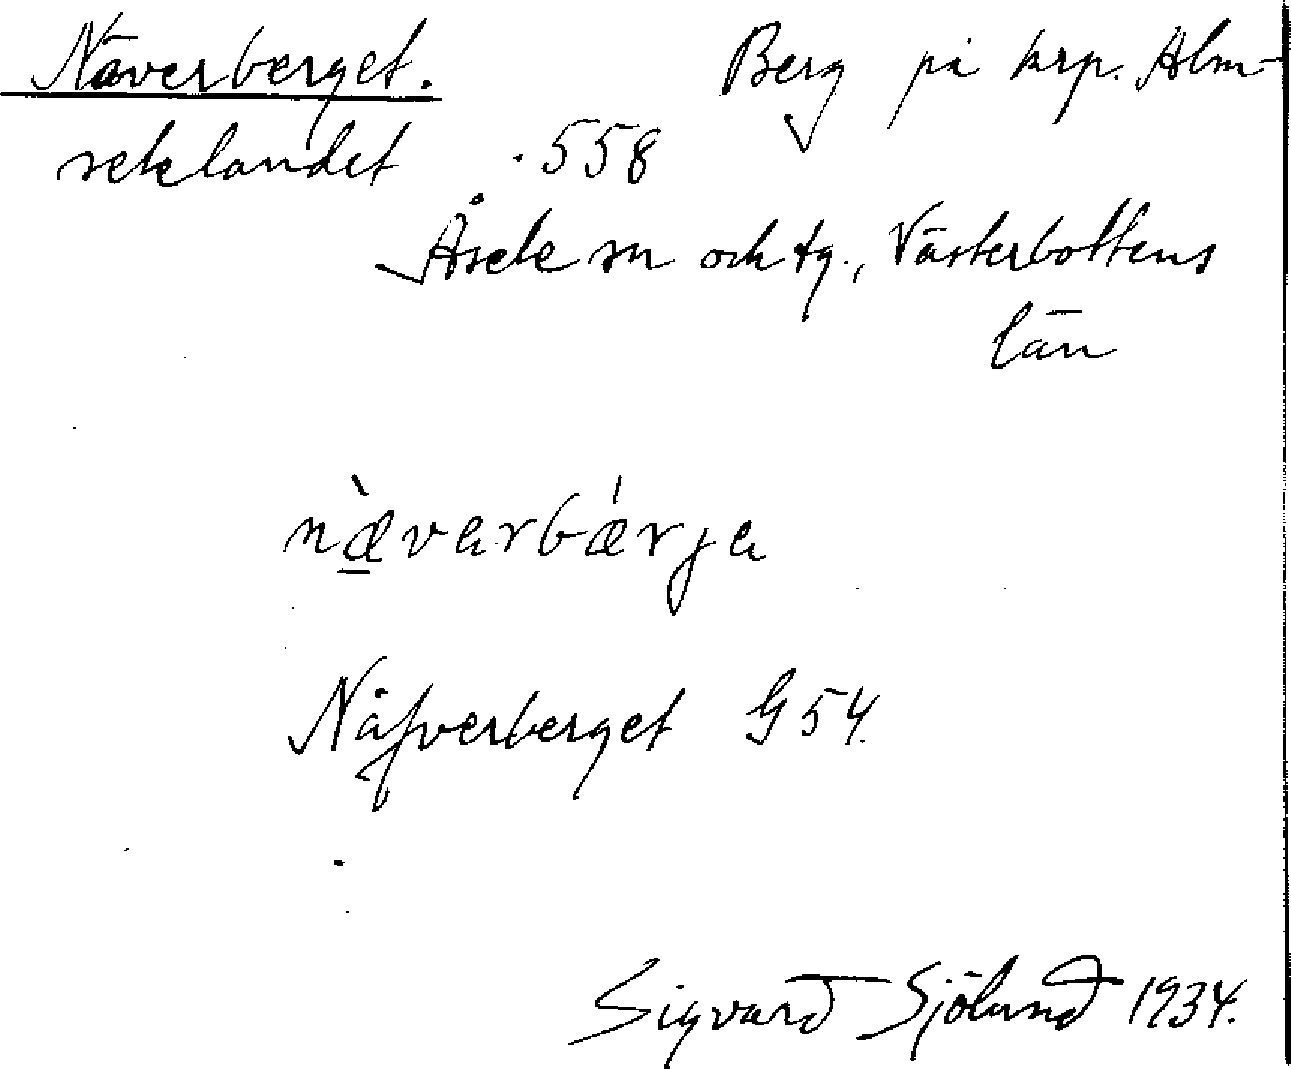 Näverberget. Berg på krp. Alm-
seklandet .558
Åsele sn och tg., Västerbottens
län
næ̀varbǽrja
Näfverberget G54.
Sigvard Sjölund 1934.